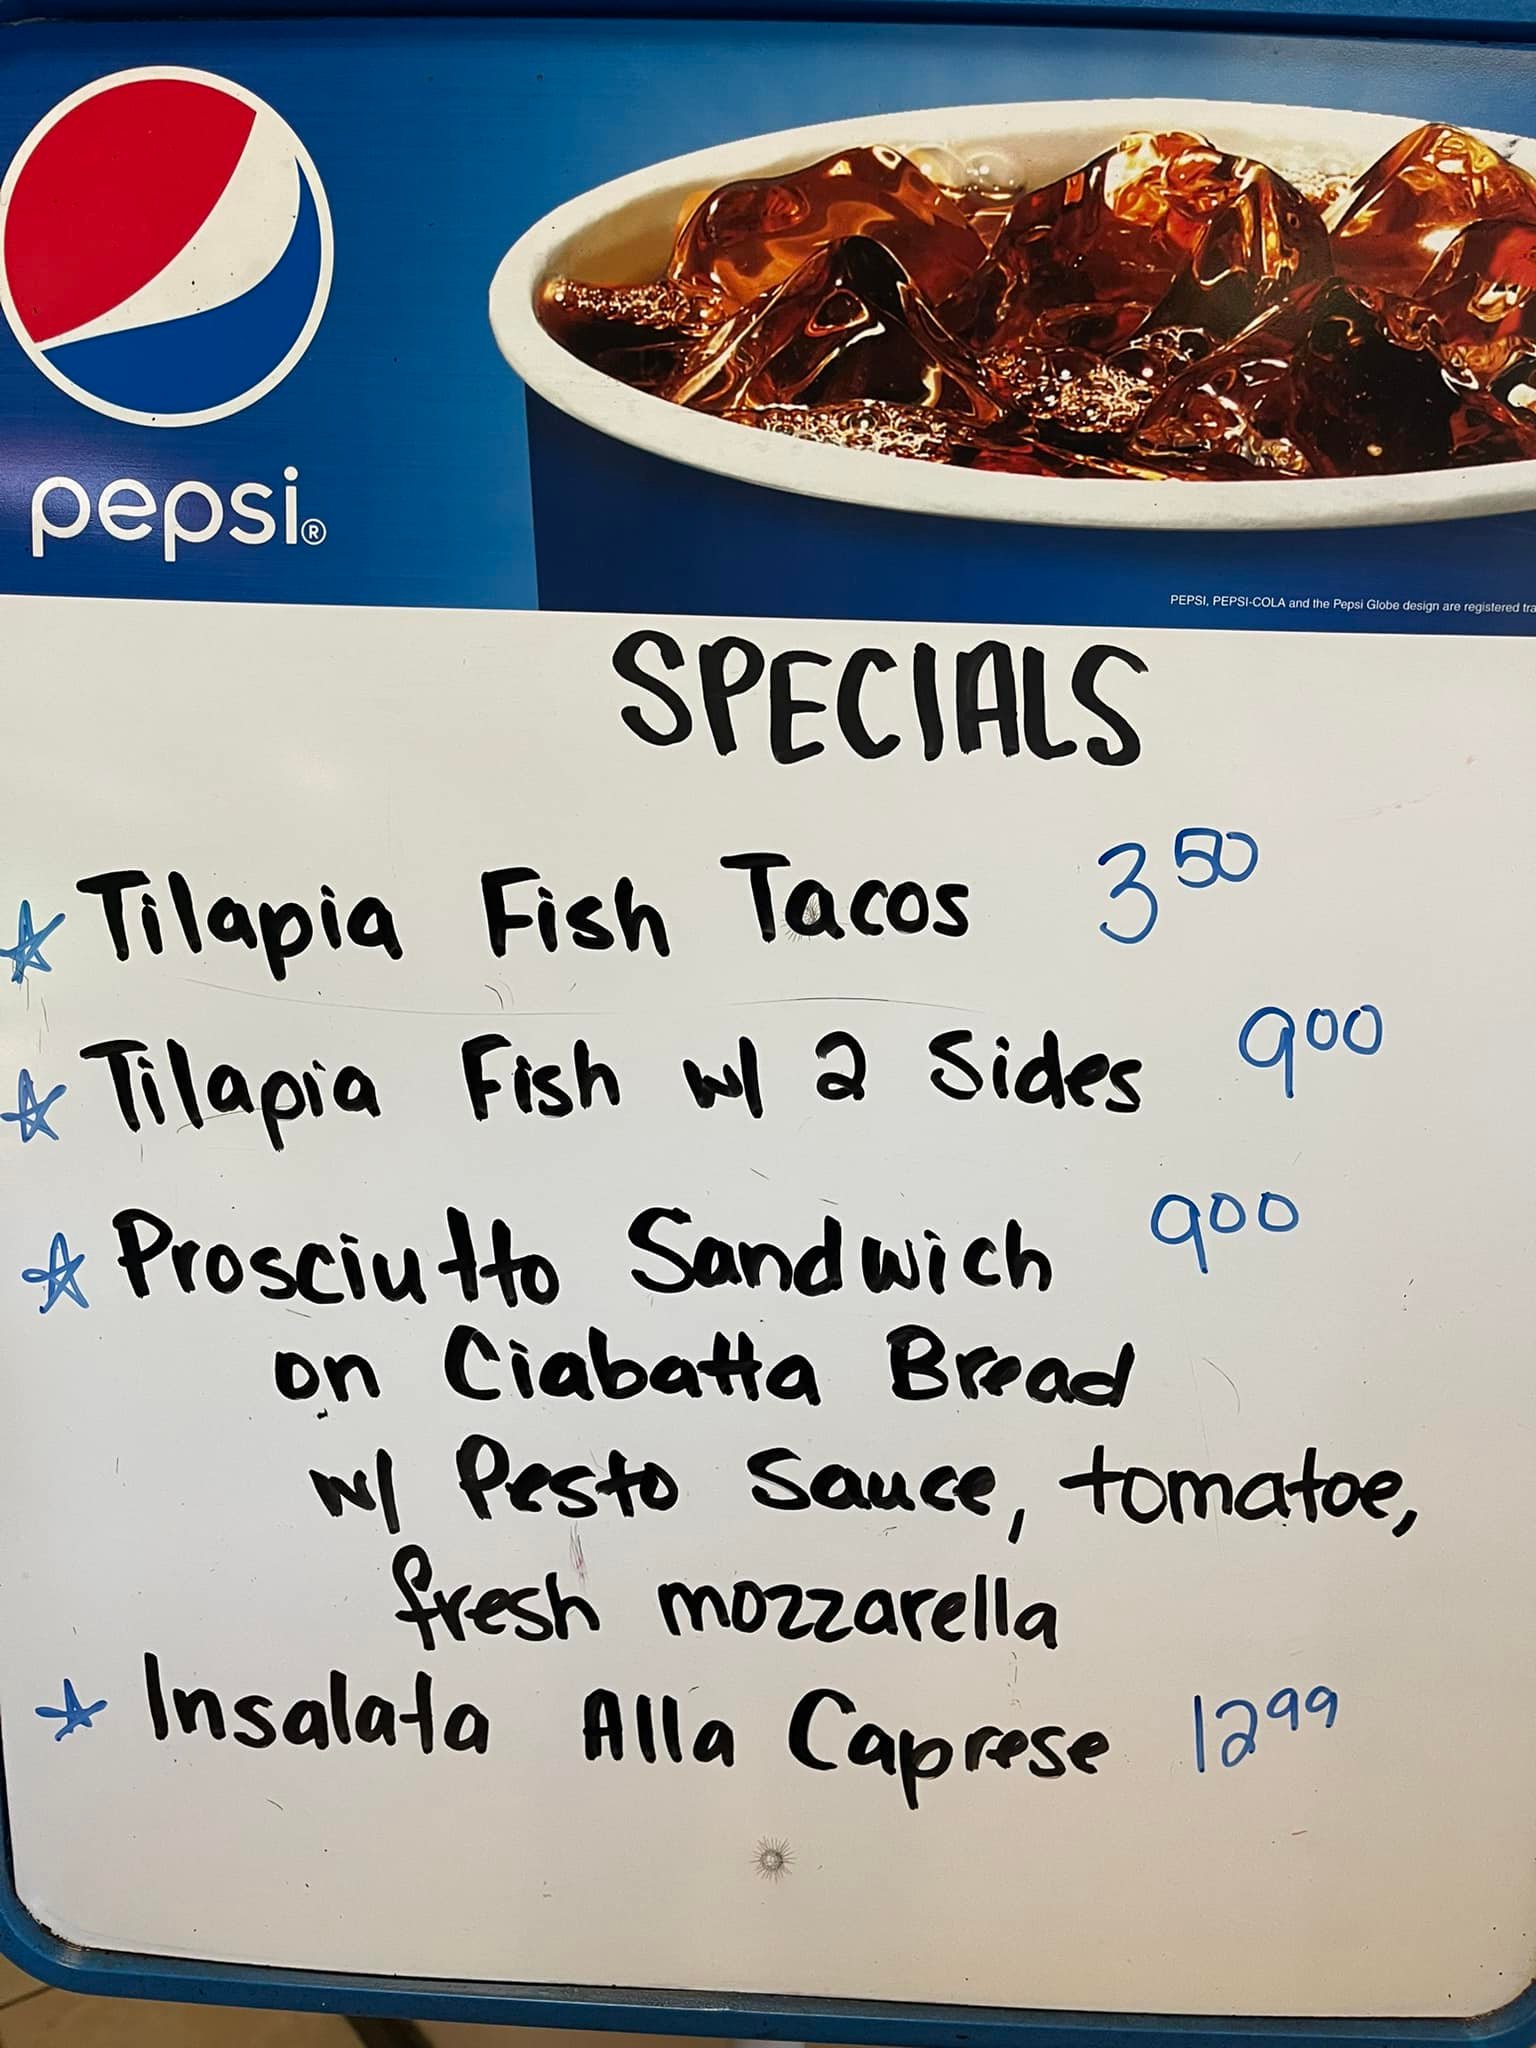 pepsi®
PEPSI, PEPSI-COLA and the Pepsi Globe design are registered tra
SPECIALS
Tilapia Fish Tacos 3.50
Tilapia Fish w/ 2 Sides 9.00
Prosciutto Sandwich 9.00
on Ciabatta Bread
w/ Pesto Sauce, tomatoe,
fresh mozzarella
Insalata Alla Caprese 12.99